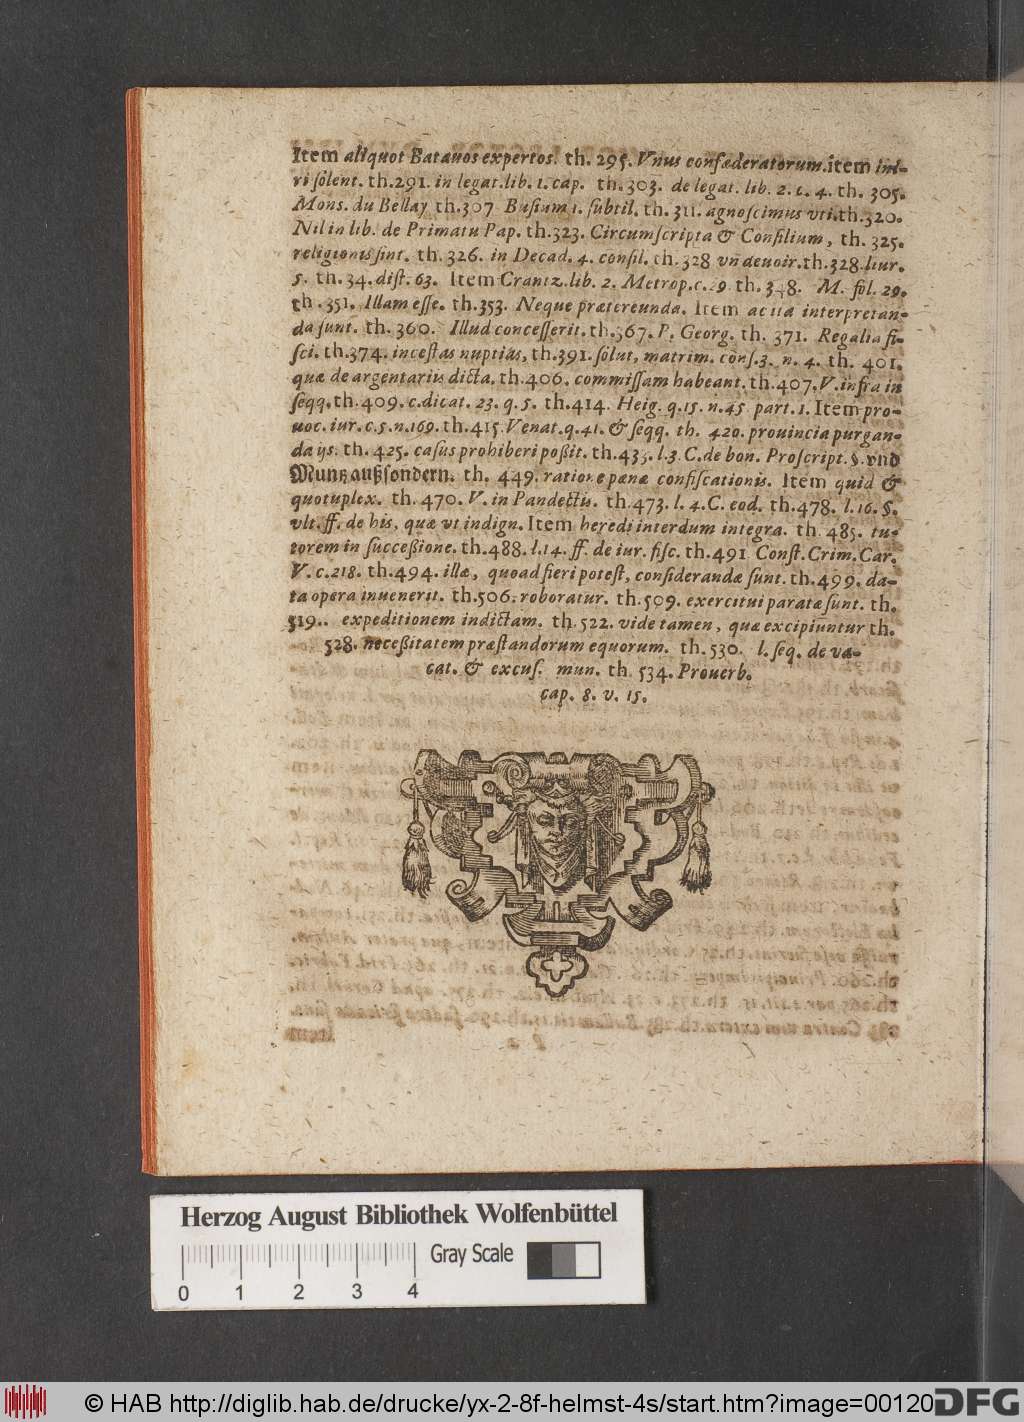 Item aliquot Batauos expertos. th. 295. Vnus confæderatorum. item ini-
ri solent. th. 291. in legat. lib. 1. cap. th. 303. de legat. lib. 2. c. 4. th. 305.
Mons. du Bellay th. 307 Busium 1. subtil. th. 311. agnoscimus vti. th. 320.
Nil in lib. de Primatu Pap. th. 323. Circumscripta & Consilium, th. 325.
religionis sint. th. 326. in Decad. 4. consil. th. 328 vn deuoir. th. 328. liur.
5. th. 34. dist. 63. Item Crantz. lib. 2. Metrop. c. 29 th. 348. M. fol. 29.
th. 351. Illam esse. th. 353. Neque prætereunda. Item ac ita interpretan-
da sunt. th. 360. Illud concesserit. th. 367. P. Georg. th. 371. Regalia fi-
sci. th. 374. incestas nuptias, th. 391. solut, matrim. cons. 3. n. 4. th. 401.
quæ de argentariis dicta. th. 406. commissam habeant. th. 407. V. infra in
seqq. th. 409. c. dicat. 23. q. 5. th. 414. Heig. q. 15. n. 45 part. 1. Item pro-
uoc. iur. c. 5. n. 169. th. 415 Venat. q. 41. & seqq. th. 420. prouincia purgan-
da ijs. th. 425. casus prohiberi poßit. th. 435. l. 3 C. de bon. Proscript. §. vnd
Muntz außsondern. th. 449. ratione pœnæ confiscationis. Item quid &
quotuplex. th. 470. V. in Pandectis. th. 473. l. 4. C. eod. th. 478. l. 16. §.
vlt. ff. de his, quæ vt indign. Item heredi interdum integra. th. 485. tu-
torem in succeßione. th. 488. l. 14. ff. de iur. fisc. th. 491 Const. Crim. Car.
V. c. 218. th. 494. illæ, quoad fieri potest, considerandæ sunt. th. 499. da-
ta opera inuenerit. th. 506. roboratur. th. 509. exercitui paratæ sunt. th.
519.. expeditionem indictam. th. 522. vide tamen, quæ excipiuntur th.
528. neceßitatem præstandorum equorum. th. 530. l. seq. de va-
cat. & excus. mun. th. 534. Prouerb.
cap. 8. v. 15.
Herzog August Bibliothek Wolfenbüttel
Gray Scale
0 1 2 3 4
© HAB http://diglib.hab.de/drucke/yx-2-8f-helmst-4s/start.htm?image=00120
DFG